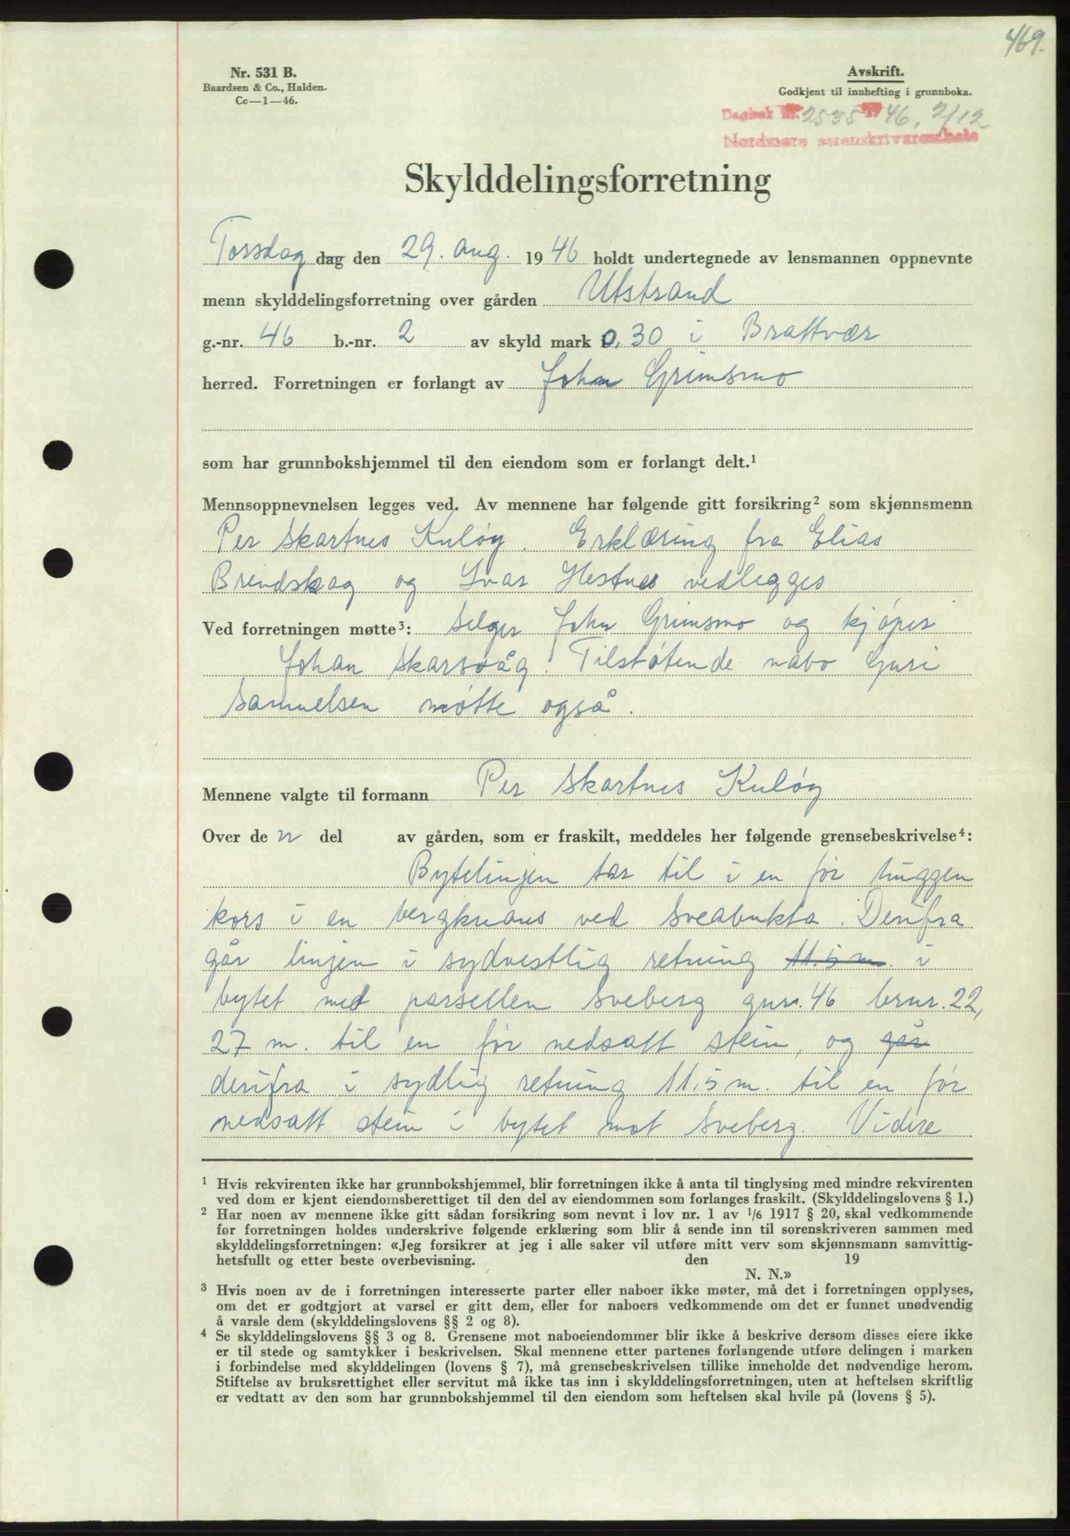 469.
Nr. 531 B.
Baardsen & Co., Halden.
Cc—1—46.
Avskrift.
Godkjent til innhefting i grunnboka.
Dagbok nr. 2535 19 46, 2/12
Nordmøre sorenskriverembete
Skylddelingsforretning
Torsdag dag den 29. aug. 1946 holdt undertegnede av lensmannen oppnevnte
menn skylddelingsforretning over gården Utstrand
g.-nr. 46 b.-nr. 2 av skyld mark 0,30 i Brattvær
herred. Forretningen er forlangt av Johan Grimsmo
som har grunnbokshjemmel til den eiendom som er forlangt delt.¹
Mennsoppnevnelsen legges ved. Av mennene har følgende gitt forsikring² som skjønnsmenn
Per Skartnes Kuløy. Erklæring fra Elias
Brendskag og Ivar Hestnes vedlegges
Ved forretningen møtte³: Selger John Grimsmo og kjøper
Johan Skarsvåg. Tilstøtende nabo Guri
Samuelsen møtte også.
Mennene valgte til formann Per Skartnes Kuløy
Over de n del av gården, som er fraskilt, meddeles her følgende grensebeskrivelse⁴:
Bytelinjen tar til i en før huggen
kors i en bergknaus ved Sveabukta. Derifra
går linjen i sydvestlig retning 11.5 m. i
bytet med parsellen Sveberg gnr. 46 brnr. 22,
27 m. til en før nedsatt stein, og går
derifra i sydlig retning 11,5 m. til en før
nedsatt stein i bytet mot Sveberg. Videre
¹ Hvis rekvirenten ikke har grunnbokshjemmel, blir forretningen ikke å anta til tinglysing med mindre rekvirenten
ved dom er kjent eiendomsberettiget til den del av eiendommen som forlanges fraskilt. (Skylddelingslovens § 1.)
² Har noen av mennene ikke gitt sådan forsikring som nevnt i lov nr. 1 av 1/6 1917 § 20, skal vedkommende
før forretningen holdes underskrive følgende erklæring som blir å sende inn til sorenskriveren sammen med
skylddelingsforretningen: «Jeg forsikrer at jeg i alle saker vil utføre mitt verv som skjønnsmann samvittig-
hetsfullt og etter beste overbevisning. den 19
N. N.»
³ Hvis noen av de i forretningen interesserte parter eller naboer ikke møter, må det i forretningen opplyses,
om det er godtgjort at varsel er gitt dem, eller for naboers vedkommende om det er funnet unødvendig
å varsle dem (skylddelingslovens §§ 2 og 8).
⁴ Se skylddelingslovens §§ 3 og 8. Grensene mot naboeiendommer blir ikke å beskrive dersom disses eiere ikke
er til stede og samtykker i beskrivelsen. Skal mennene etter partenes forlangende utføre delingen i marken
i forbindelse med skylddelingen (lovens § 7), må grensebeskrivelsen tillike inneholde det nødvendige herom.
Stiftelse av bruksrettighet eller servitut må ikke tas inn i skylddelingsforretningen, uten at heftelsen skriftlig
er vedtatt av den som har grunnbokshjemmel til den eiendom som heftelsen skal hvile på (lovens § 5).